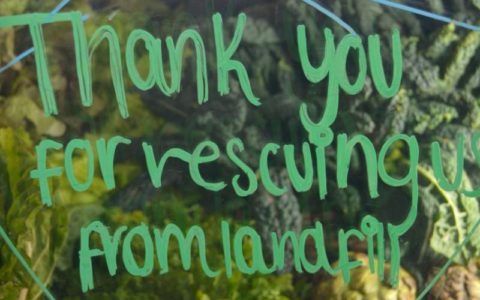 Thank you
for rescuing us
from landfill